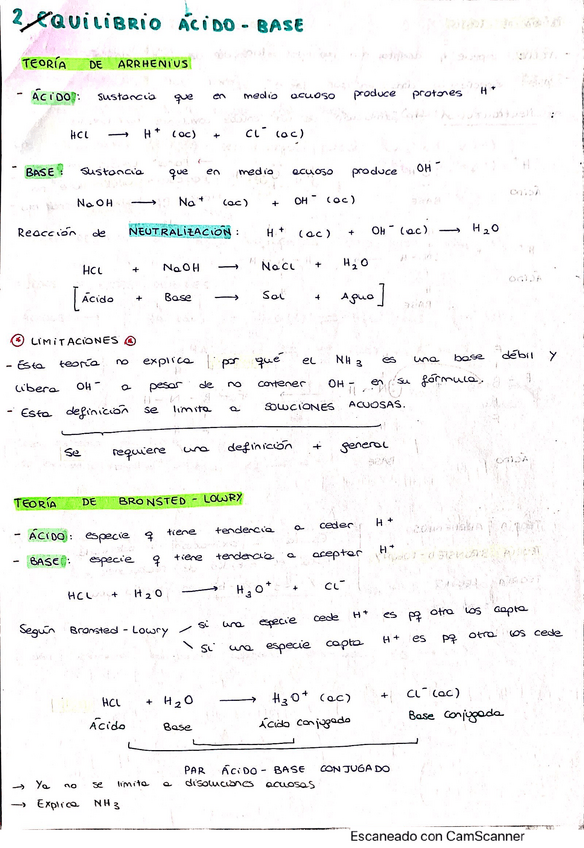 2. EQUILIBRIO ÁCIDO - BASE
TEORÍA DE ARRHENIUS
- ÁCIDO: sustancia que en medio acuoso produce protones H⁺
HCl ⟶ H⁺ (ac) + Cl⁻ (ac)
- BASE: Sustancia que en medio acuoso produce OH⁻
NaOH ⟶ Na⁺ (ac) + OH⁻ (ac)
Reacción de NEUTRALIZACIÓN: H⁺ (ac) + OH⁻ (ac) ⟶ H₂O
HCl + NaOH ⟶ NaCl + H₂O
[Ácido + Base ⟶ Sal + Agua]
* LIMITACIONES *
- Esta teoría no explica por qué el NH₃ es una base débil y
libera OH⁻ a pesar de no contener OH⁻ en su fórmula.
- Esta definición se limita a SOLUCIONES ACUOSAS.
Se requiere una definición + general
TEORÍA DE BRONSTED - LOWRY
- ÁCIDO: especie q tiene tendencia a ceder H⁺
- BASE: especie q tiene tendencia a aceptar H⁺
HCl + H₂O ⟶ H₃O⁺ + Cl⁻
Según Bronsted - Lowry / si una especie cede H⁺ es pq otra los capta
\ si una especie capta H⁺ es pq otra los cede
HCl + H₂O ⟶ H₃O⁺ (ac) + Cl⁻ (ac)
Ácido Base Ácido conjugado Base conjugada
PAR ÁCIDO - BASE CONJUGADO
→ Ya no se limita a disoluciones acuosas
→ Explica NH₃
Escaneado con CamScanner